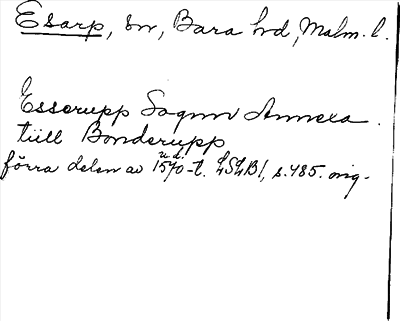 Esarp, sn, Bara hd, Malm. l.
Esserupp Sognn Annexa.
tüll Bonderupp
u.d.
förra delen av 1570-t. LSLB1, s. 485. orig.